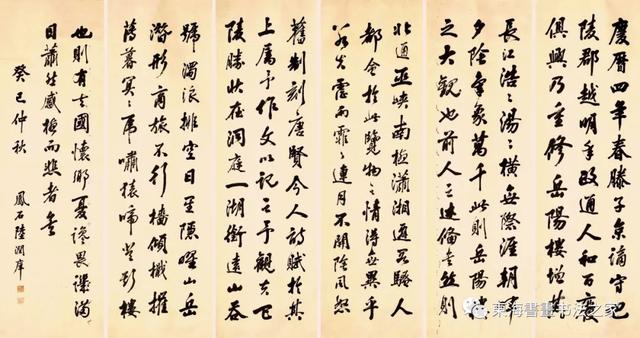 慶曆四年春滕子京謫守巴
陵郡越明年政通人和百廢
俱興乃重修岳陽樓增其
長江浩〻湯〻橫無際涯朝暉
夕陰氣象萬千此則岳陽樓
之大觀也前人之述備矣然則
北通巫峽南極瀟湘遷客騷人
都會於此覽物之情得無異乎
若夫霪雨霏〻連月不開陰風怒
舊制刻唐賢今人詩賦於其
上屬予作文以記之予觀夫巴
陵勝狀在洞庭一湖銜遠山吞
號濁浪排空日星隱曜山岳
潛形商旅不行檣傾楫摧
薄暮冥〻虎嘯猿啼登斯樓
也則有去國懷鄉憂讒畏譏滿
目蕭然感極而悲者矣
癸巳仲秋
鳳石陸潤庠
東海書畫书法之家